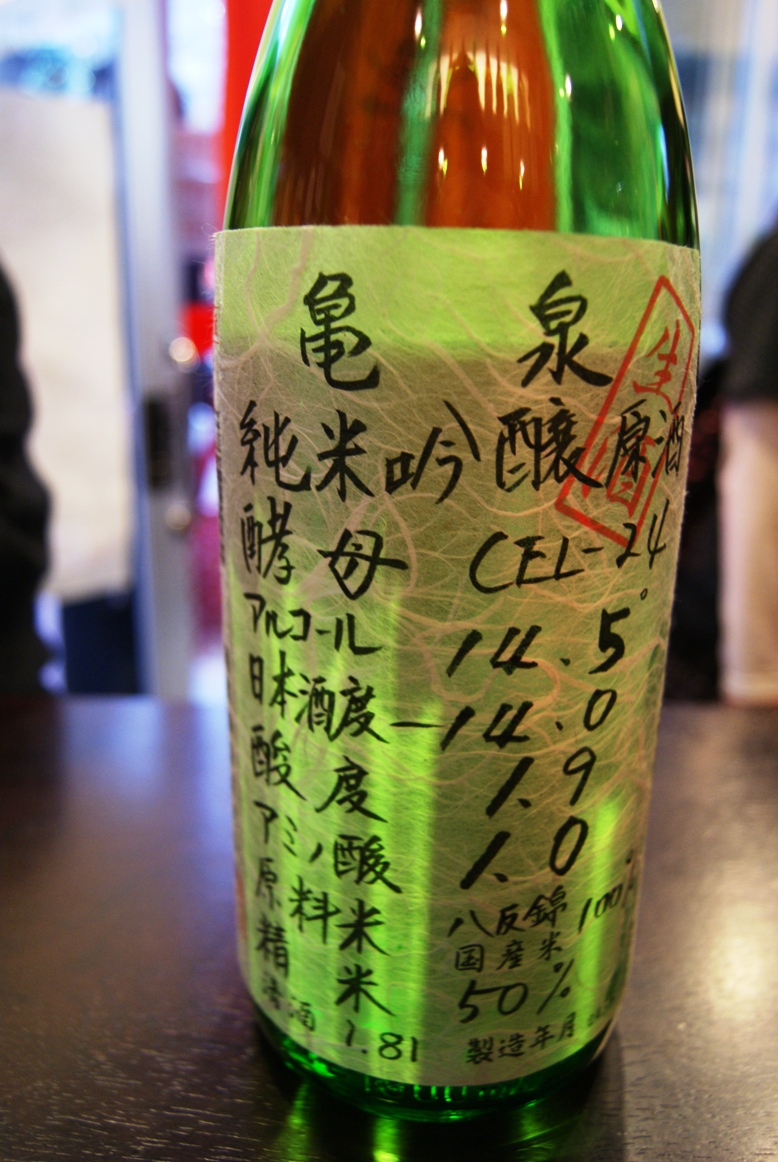 亀泉
純米吟醸原酒
酵母 CEL-24
アルコール 14.5°
日本酒度 -14.0
酸度 1.9
アミノ酸 1.0
原料米 八反錦 100%
国産米
精米 50%
清酒 1.8l 製造年月
生酒